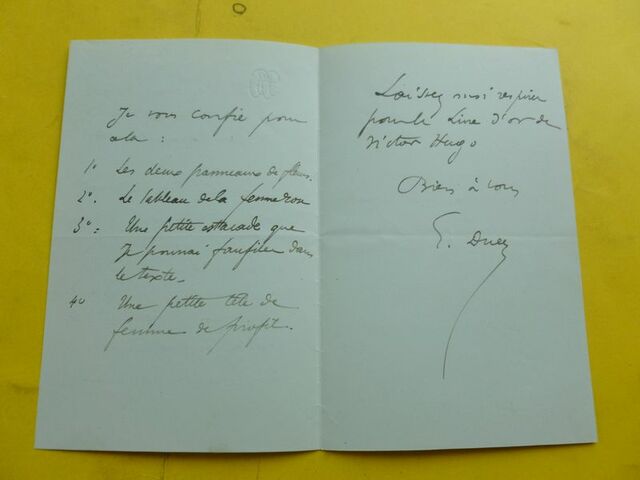 Je vous confie pour
cela :
1° Les deux panneaux de fleurs.
2°. Le tableau de la
3° : Une petite estacade que
Je pourrai faufiler dans
le texte.
4° Une petite tête de
femme de profil.
Laissez moi respirer
pour le Livre d'or de
Victor Hugo
Bien à vous
E. Duez